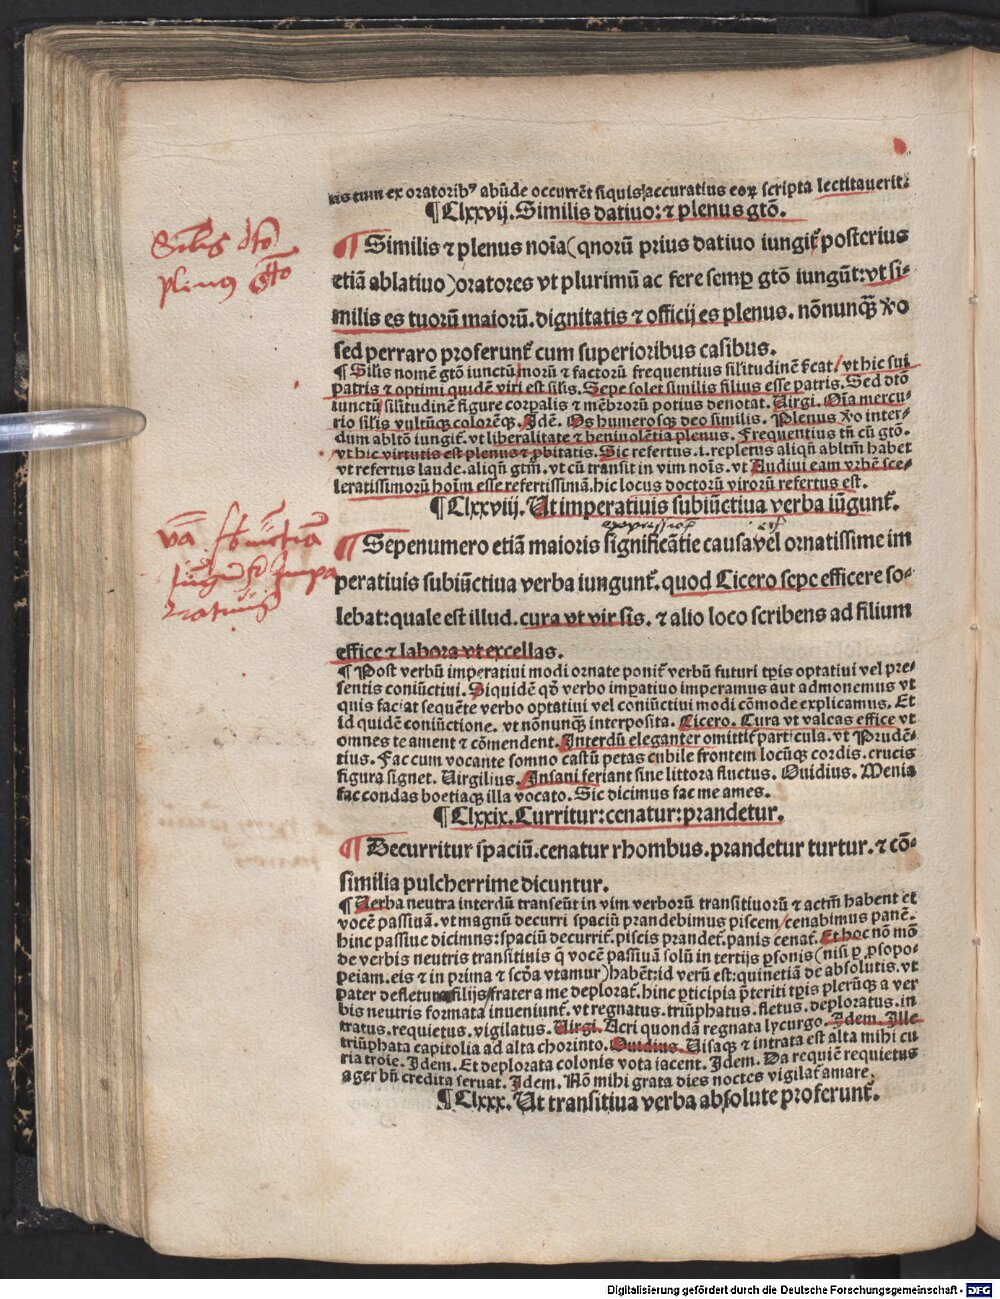 tis tum ex oratoribꝰ abūde occurrēt siquis accuratius eoꝝ scripta lectitauerit.
¶Clxxvij. Similis datiuo: ⁊ plenus gtō.
Similis dto
plenus gto
¶ Similis ⁊ plenus noīa (qnorū prius datiuo iungit̃ posterius
etiā ablatiuo) oratores vt plurimū ac fere semꝑ gtō iungūt: vt si-
milis es tuorū maiorū. dignitatis ⁊ officij es plenus. nōnunqȝ̃ ꝟo
sed perraro proferunt̃ cum superioribus casibus.
¶ Silis nomē gtō iunctū morū ⁊ factorū frequentius silitudinē fcat / vt hic sui
patris ⁊ optimi quidē viri est silis. Sepe solet similis filius esse patris. Sed dtō
iunctū silitudinē figure corꝑalis ⁊ mēbrorū potius denotat. Uirgi. Oīa mercu-
rio silis vultūqȝ colorēqȝ. Idē. Os humerosqȝ deo similis. Plenus ꝟo inter-
dum abltō iungit̃. vt liberalitate ⁊ beniuolētia plenus. Frequentius tñ cū gtō.
vt hic virtutis est plenus ⁊ ꝓbitatis. Sic refertus .i. repletus aliqñ abltm̄ habet
vt refertus laude. aliqñ gtm̄. vt cū transit in vim noīs. vt Audiui eam vrbē sce-
leratissimorū hoīm esse refertissimā. hic locus doctorū virorū refertus est.
¶Clxxviij. Ut imperatiuis subiūctiua verba iūgunt̃.
¶ Sepenumero etiā maioris significātie causa vel ornatissime im
peratiuis subiūctiua verba iungunt̃. quod Cicero sepe efficere so-
lebat: quale est illud. cura vt vir sis. ⁊ alio loco scribens ad filium
effice ⁊ labora vt excellas.
¶ Post verbū imperatiui modi ornate ponit̃ verbū futuri tꝑis optatiui vel pre-
sentis coniūctiui. Siquidē qȝ verbo imꝑatiuo imperamus aut admonemus vt
quis faciat sequēte verbo optatiui vel coniūctiui modi cōmode explicamus. Et
id quidē coniūctione. vt nōnunqȝ interposita. Cicero. Cura vt valeas effice vt
omnes te ament ⁊ cōmendent. Interdū eleganter omittit̃ particula. vt Prudē-
tius. Fac cum vocante somno castū petas cubile frontem locūqȝ cordis. crucis
figura signet. Uirgilius. Insani feriant sine littora fluctus. Ouidius. Menia
fac condas boetiaqȝ illa vocato. Sic dicimus fac me ames.
¶Clxxix. Curritur: cenatur: prandetur.
¶ Decurritur spaciū. cenatur rhombus. prandetur turtur. ⁊ cō-
similia pulcherrime dicuntur.
¶ Uerba neutra interdū transeūt in vim verborū transitiuorū ⁊ actm̄ habent et
vocē passiuā. vt magnū decurri spaciū prandebimus piscem / cenabimus panē.
hinc passiue dicimus: spaciū decurrit̃. piscis prandet̃. panis cenat̃. Et hoc nō mō
de verbis neutris transitiuis q̄ vocē passiuā solū in tertijs ꝑsonis (nisi ꝑ ꝓsopo-
peiam. eis ⁊ in prima ⁊ scd̄a vtamur) habēt: id verū est: quinetiā de absolutis. vt
pater defletur a filijs / frater a me deplorat̃. hinc ꝑticipia p̄teriti tꝑis plerūqȝ a ver
bis neutris formata inueniunt̃. vt regnatus. triūphatus. fletus. deploratus. in
tratus. requietus. vigilatus. Uirgi. Acri quondā regnata lycurgo. Idem. Ille
triūphata capitolia ad alta chorinto. Ouidius. Uisaqȝ ⁊ intrata est alta mihi cu
ria troie. Idem. Et deplorata colonis vota iacent. Idem. Da requiē requietus
ager bñ credita seruat. Idem. Nō mihi grata dies noctes vigilat̃ amare.
¶Clxxx. Ut transitiua verba absolute proferunt̃.
Digitalisierung gefördert durch die Deutsche Forschungsgemeinschaft - DFG